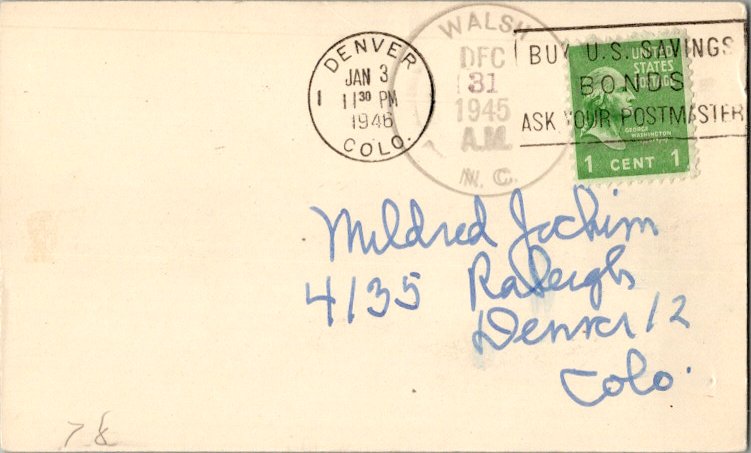 DENVER
JAN 3
1 11 30 PM
1946
COLO.
WALSH
DEC
31
1945
A.M.
N.C.
BUY U.S. SAVINGS
BONDS
ASK YOUR POSTMASTER
UNITED
STATES
GEORGE
WASHINGTON
1 CENT 1
Mildred Jochim
4135 Raleigh
Denver 12
Colo.
78